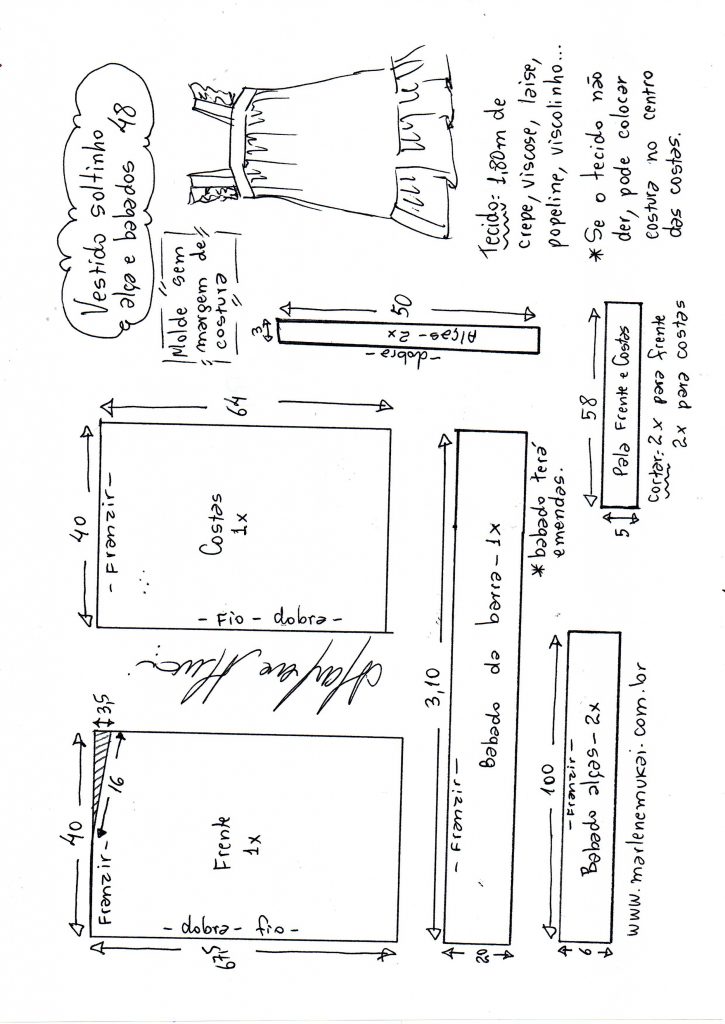 Vestido soltinho
e alça e babados 48
"Molde sem
margem de
costura"
Tecido: 1,80m de
crepe, viscose, laise,
popeline, viscolinho...
* Se o tecido não
der, pode colocar
costura no centro
das costas.
40
- Franzir -
3,5
16
67,5
Frente
1x
- dobra - fio -
40
- Franzir -
64
Costas
1x
- Fio - dobra -
3
50
Alças - 2x
- dobra -
3,10
- Franzir -
20
Babado da barra - 1x
* babado terá
emendas.
58
5
Pala Frente e Costas
Cortar: 2x para frente
2x para costas
100
- Franzir -
6
Babado alças - 2x
www.marlenemukai.com.br